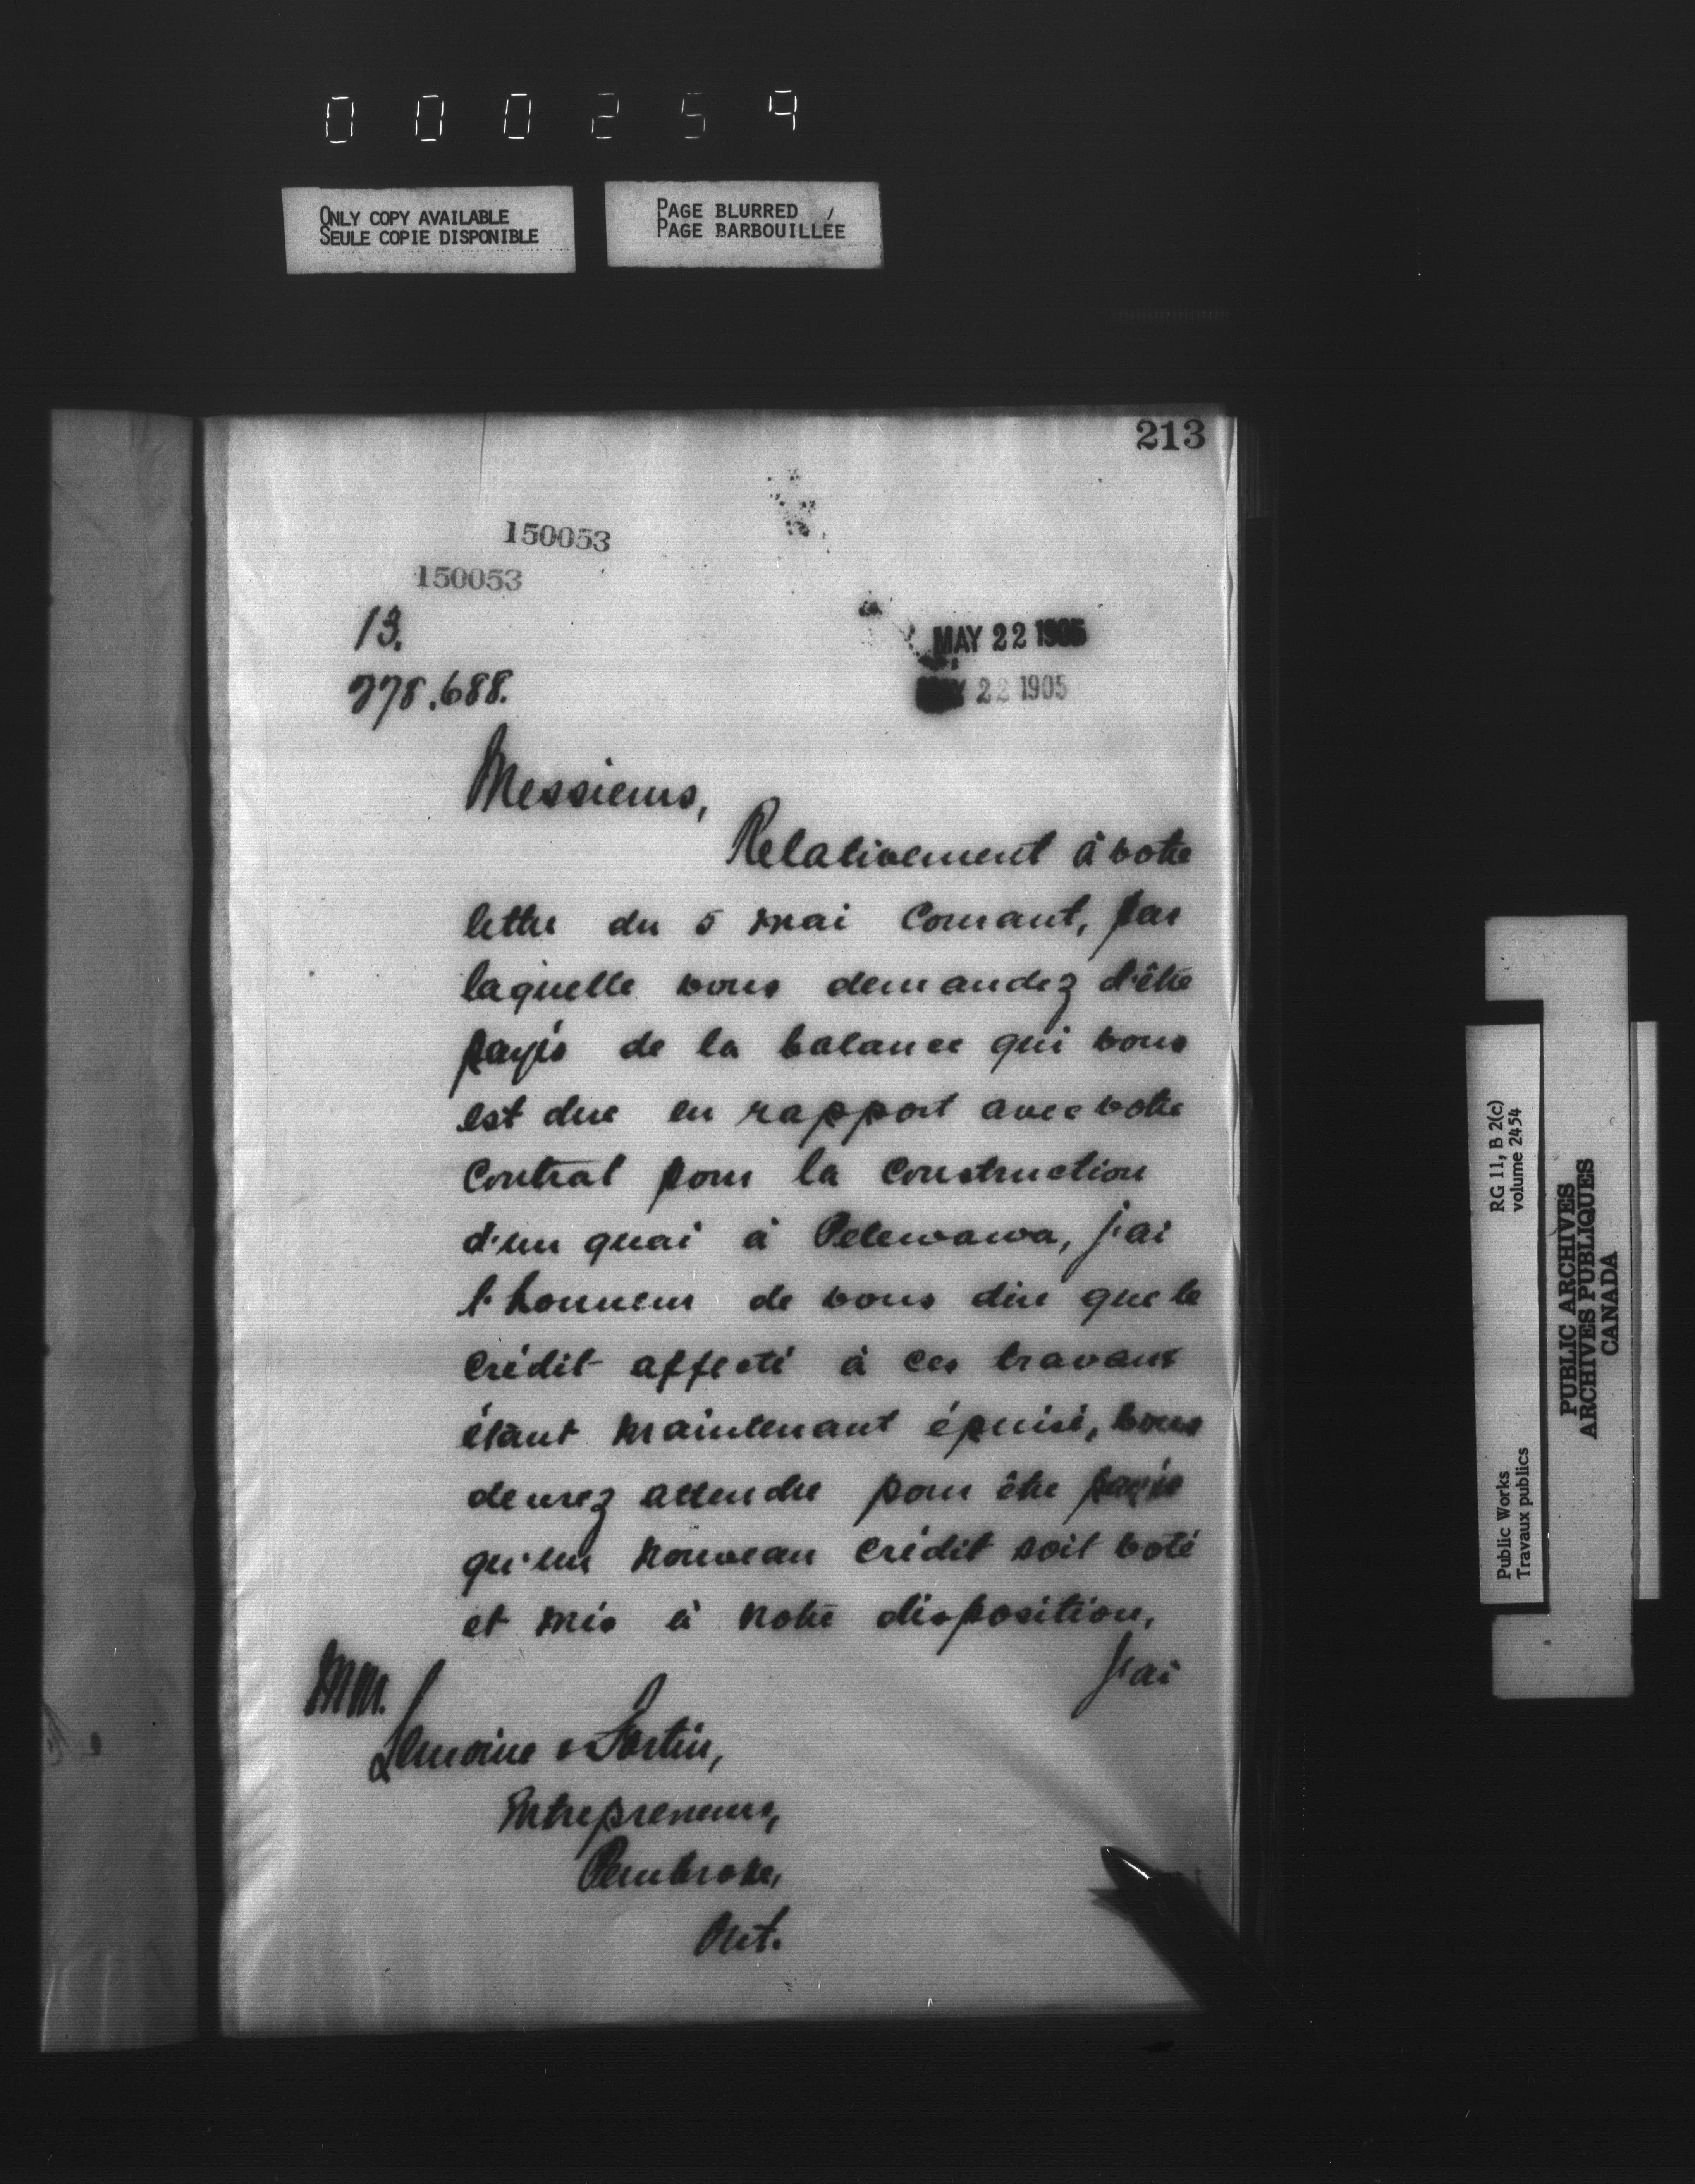 000254
ONLY COPY AVAILABLE
SEULE COPIE DISPONIBLE
PAGE BLURRED
PAGE BARBOUILLÉE
213
150053
150053
13.
278.688.
MAY 22 1905
MAY 22 1905
Messieurs,
Relativement à votre
lettre du 5 mai courant, par
laquelle vous demandez d'être
payés de la balance qui vous
est due en rapport avec votre
contrat pour la construction
d'un quai à Petewawa, j'ai
l'honneur de vous dire que le
crédit affecté à ces travaux
étant maintenant épuisé, vous
devrez attendre pour être payés
qu'un nouveau crédit soit voté
et mis à notre disposition,
J'ai
MM.
Lemoine & Fortin,
Entrepreneurs,
Pembroke,
Ont.
RG 11, B 2(c)
volume 2454
Public Works
Travaux publics
PUBLIC ARCHIVES
ARCHIVES PUBLIQUES
CANADA